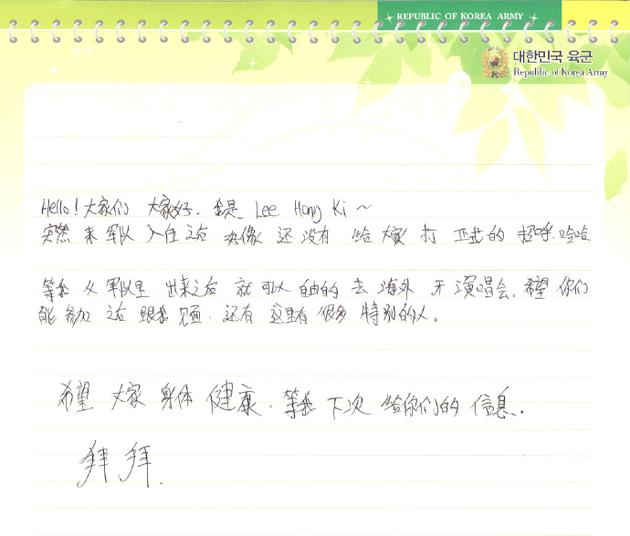 REPUBLIC OF KOREA ARMY
대한민국 육군
Republic of Korea Army
Hello! 大家们 大家好. 我是 Lee Hong Ki ~
突然 来 军队 入住 之后 好像 还 没有 给 大家 打 正式的 招呼. 哈哈
等我 从 军队里 出来之后 就 可以 自由的 去 海外 开 演唱会. 希望 你们
能 参加 之后 跟我 见面. 还有 这里有 很多 特别的人。
希望 大家 身体 健康. 等我 下次 给你们的 信息.
拜拜.